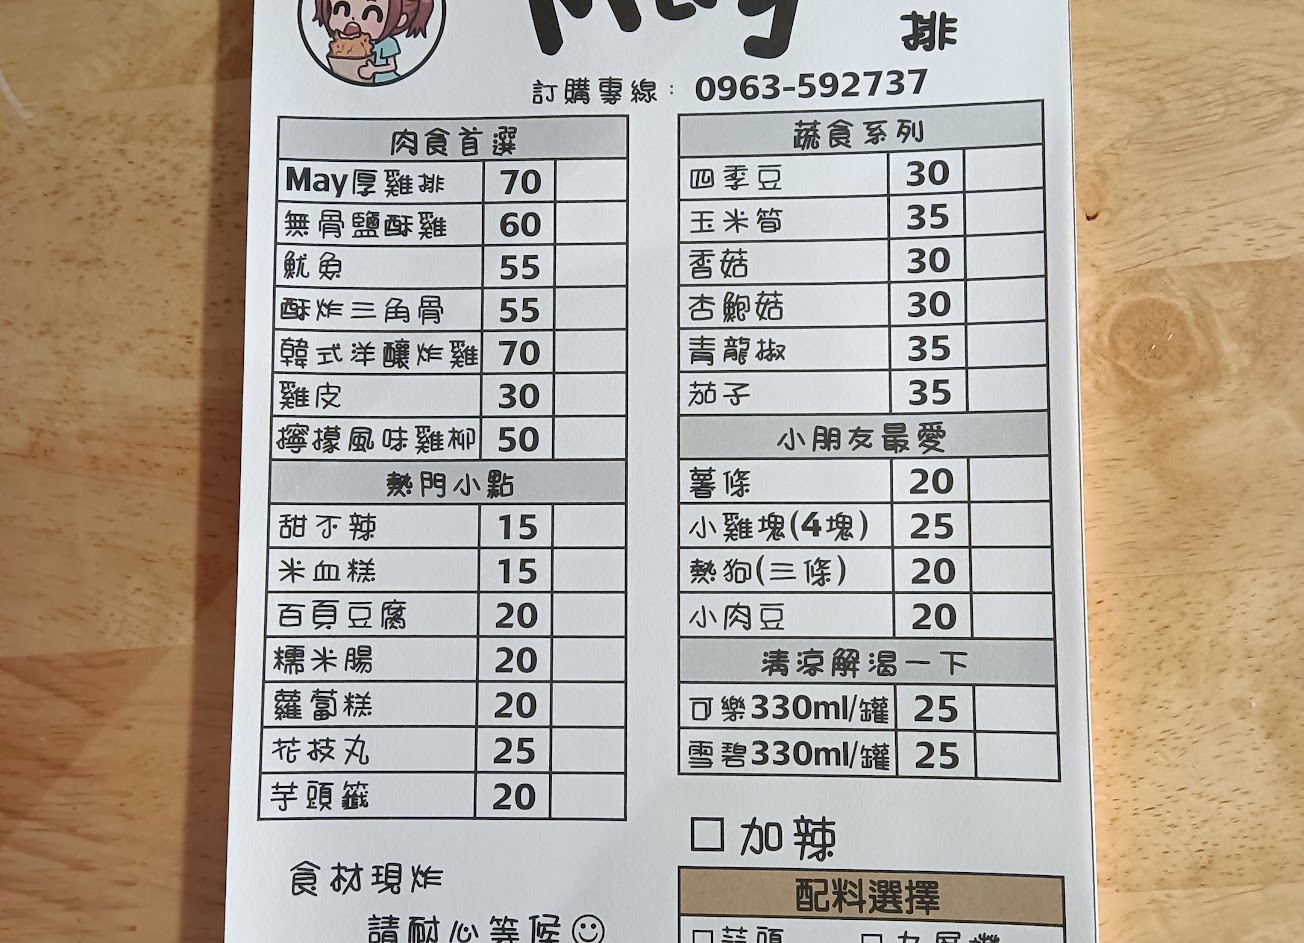 May
排
訂購專線：0963-592737
肉食首選
May厚雞排 70
無骨鹽酥雞 60
魷魚 55
酥炸三角骨 55
韓式洋釀炸雞 70
雞皮 30
檸檬風味雞柳 50
熱門小點
甜不辣 15
米血糕 15
百頁豆腐 20
糯米腸 20
蘿蔔糕 20
花枝丸 25
芋頭籤 20
食材現炸
請耐心等候☺
蔬食系列
四季豆 30
玉米筍 35
香菇 30
杏鮑菇 30
青龍椒 35
茄子 35
小朋友最愛
薯條 20
小雞塊(4塊) 25
熱狗(三條) 20
小肉豆 20
清涼解渴一下
可樂330ml/罐 25
雪碧330ml/罐 25
□加辣
配料選擇
□蒜頭 □九層塔